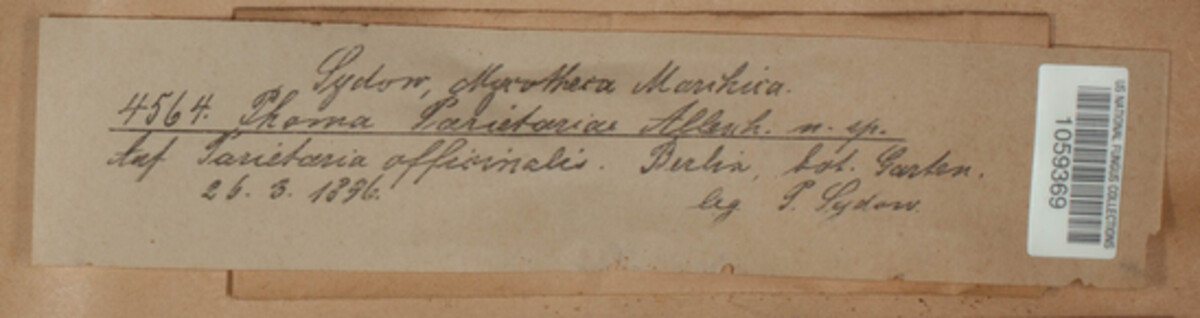 Sydow, Mycotheca Marchica.
4564. Phoma Parietariae Allesch. n. sp.
Auf Parietaria officinalis. Berlin, bot. Garten.
26. 3. 1896.
leg. P. Sydow.
US NATIONAL FUNGUS COLLECTIONS
1059369